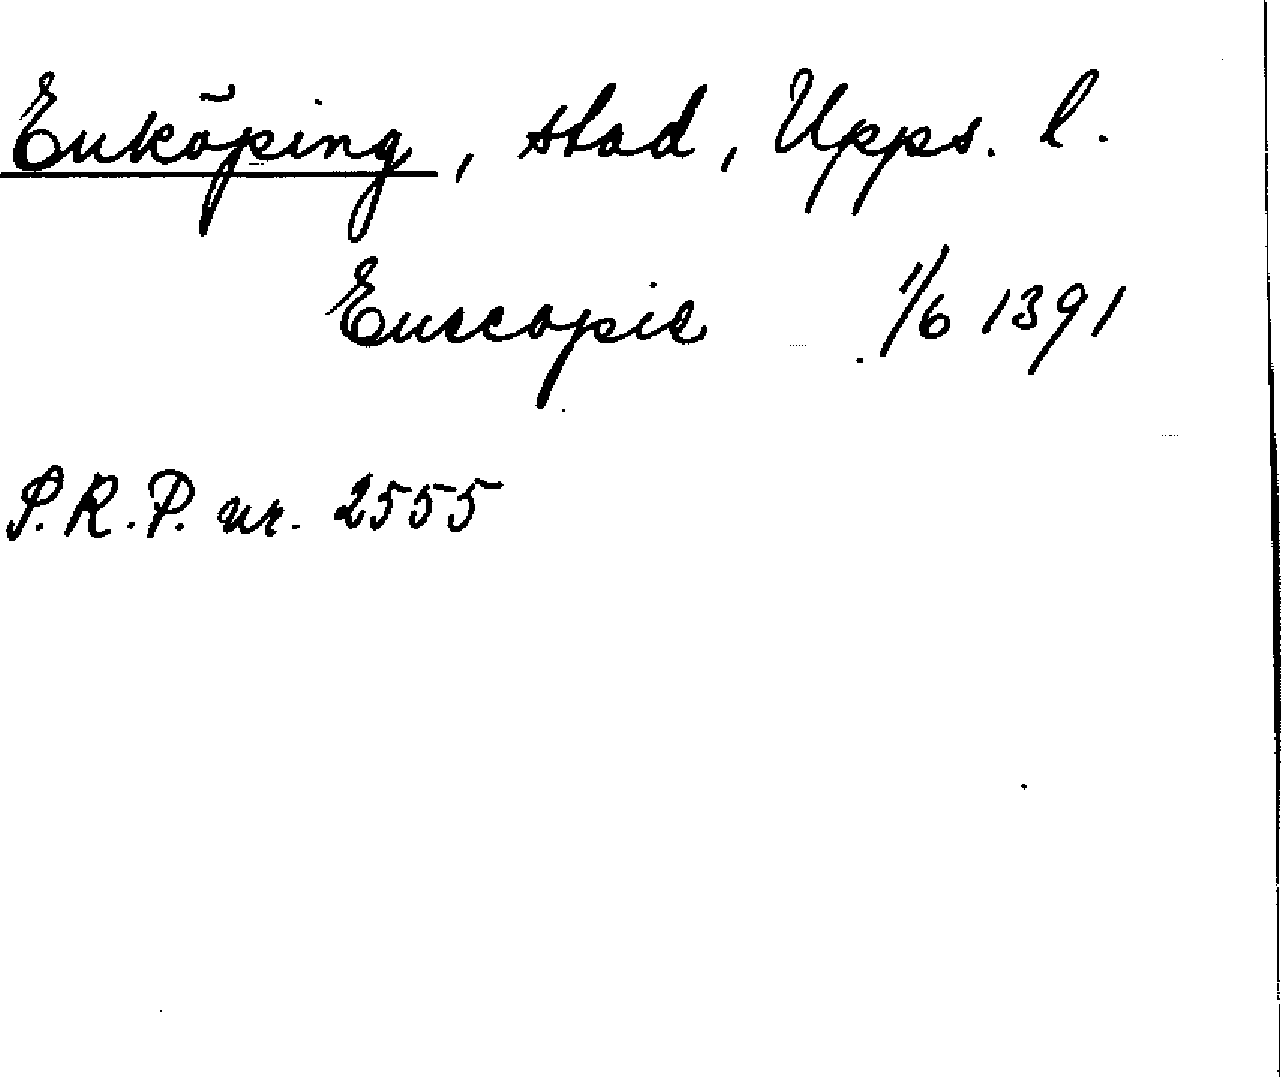 Enköping, stad, Upps. l.
Enccopie 1/6 1391
S.R.P. nr. 2555